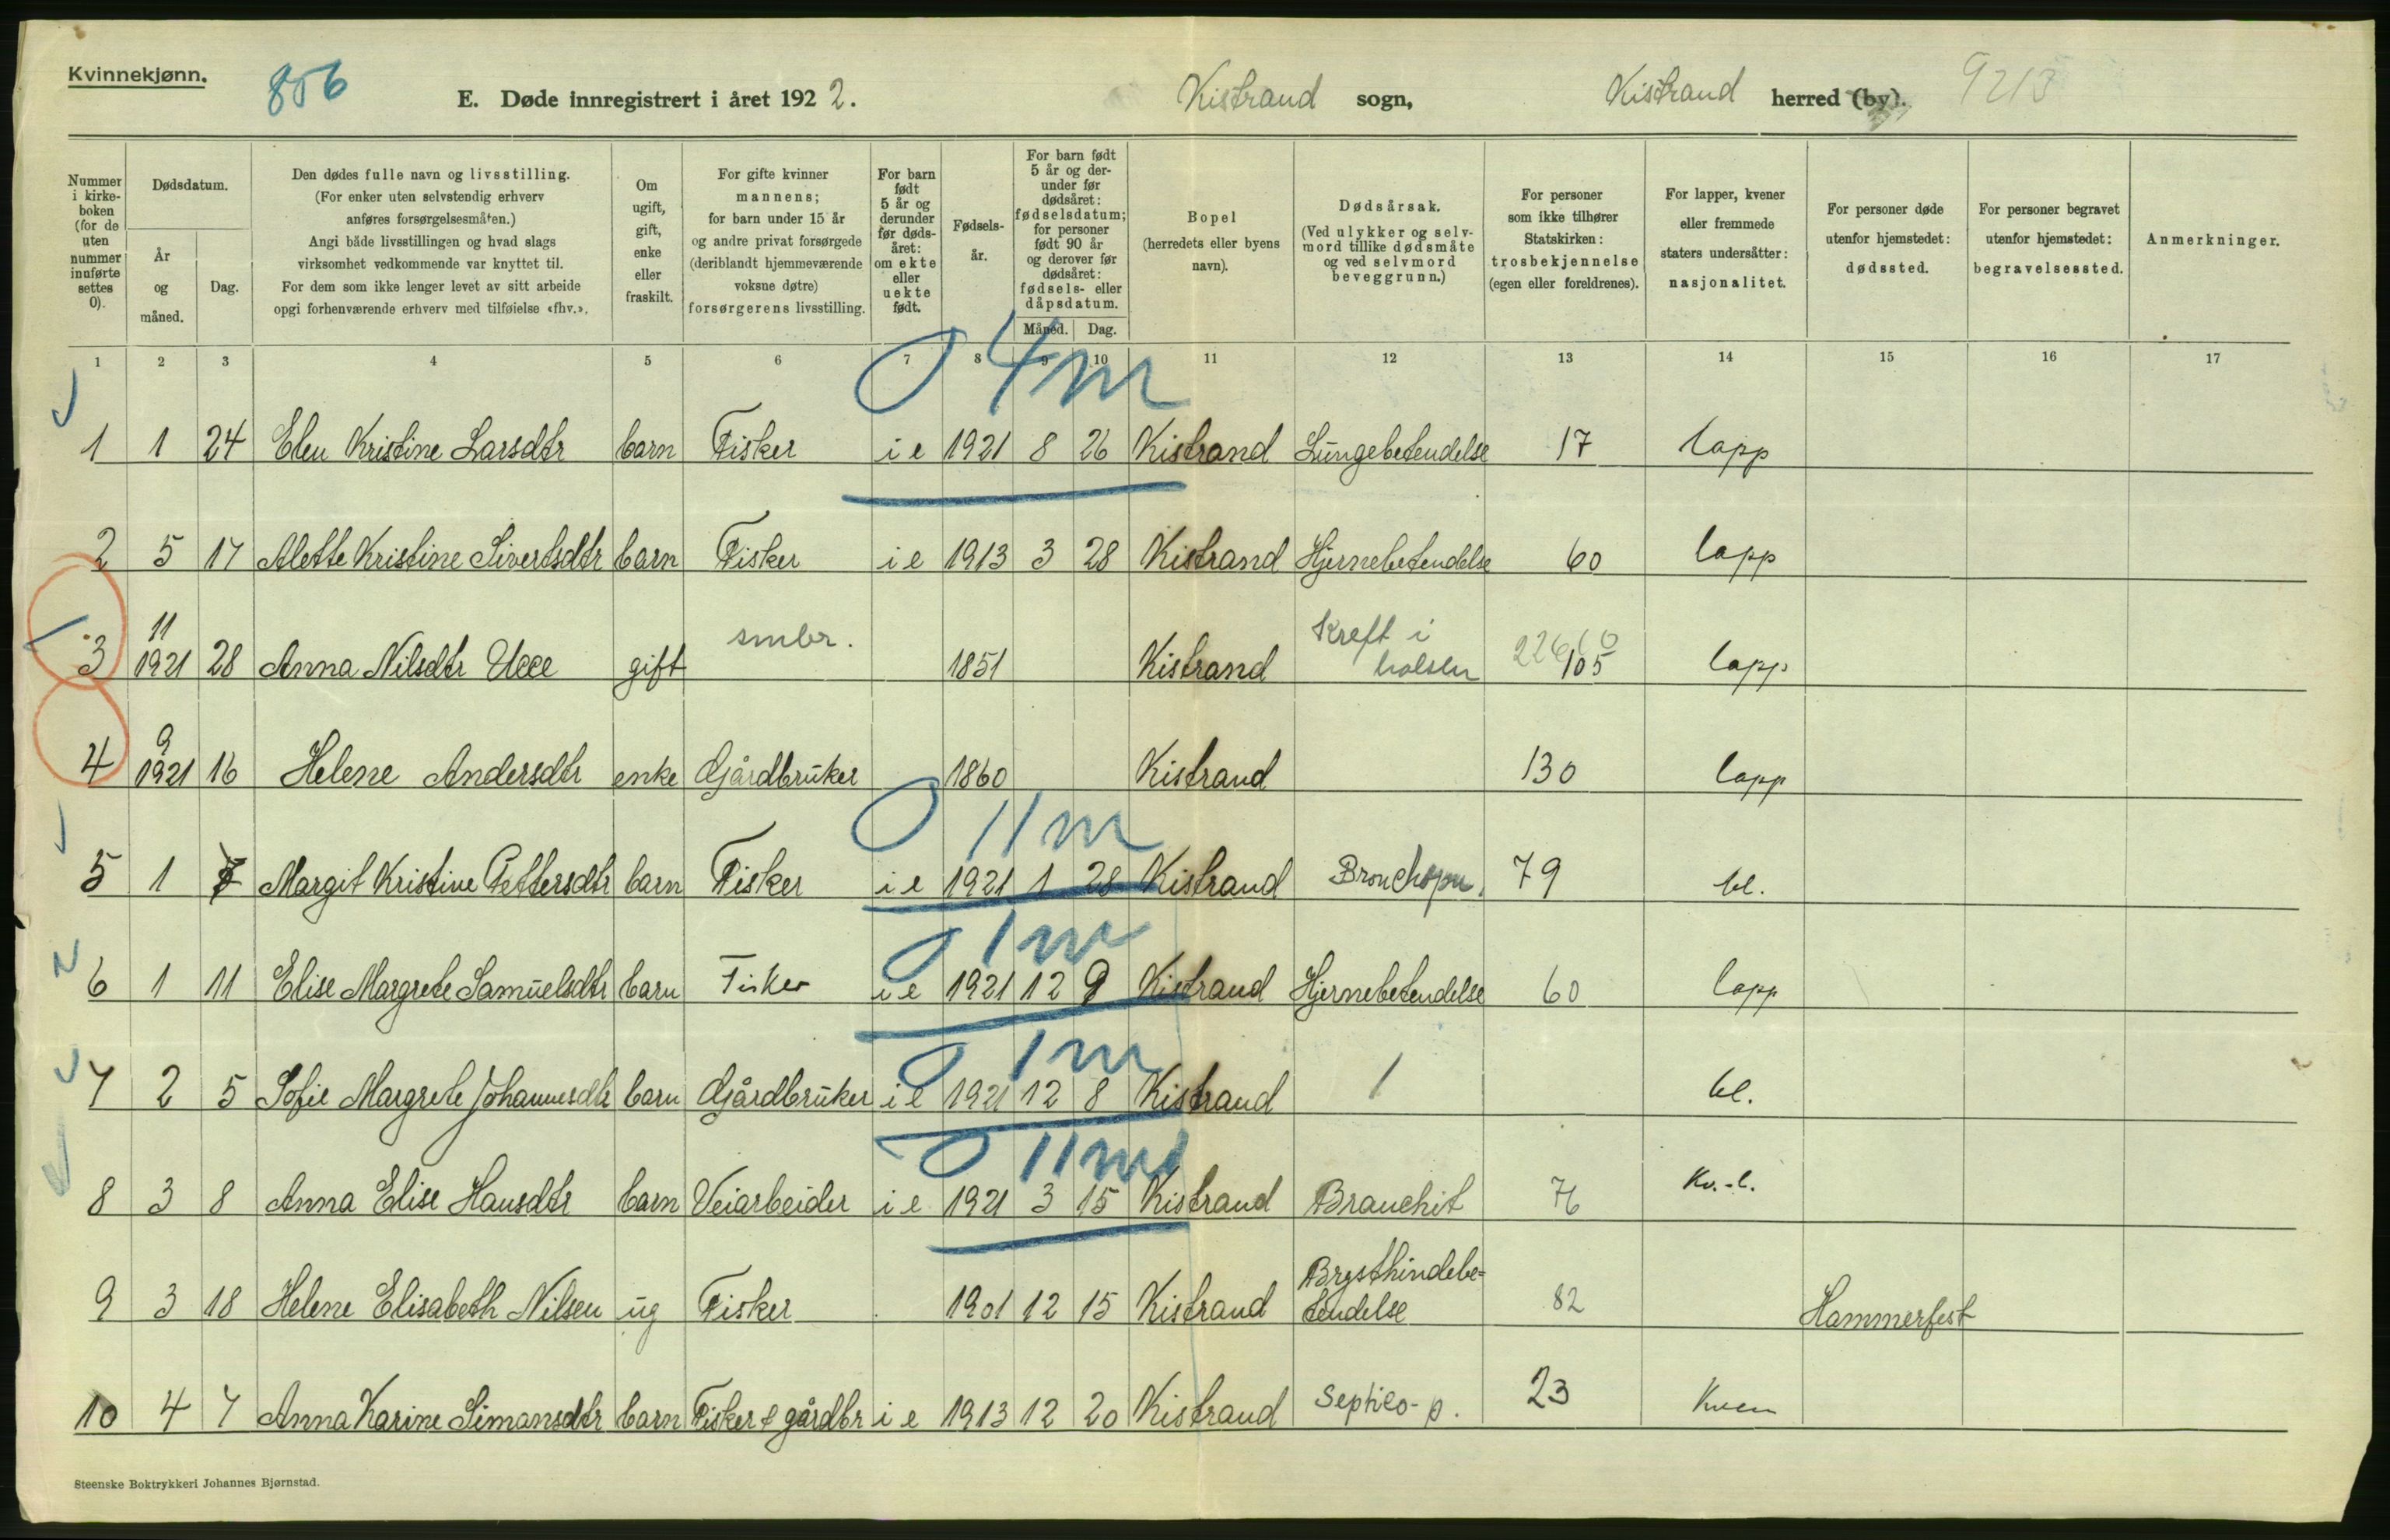 Kvinnekjønn.
856
E. Døde innregistrert i året 1922.
Kistrand sogn,
Kistrand herred (by).
9213
Nummer i kirkeboken (for de uten nummer innførte settes 0).
Dødsdatum.
År og måned.
Dag.
Den dødes fulle navn og livsstilling.
(For enker uten selvstendig erhverv
anføres forsørgelsesmåten.)
Angi både livsstillingen og hvad slags
virksomhet vedkommende var knyttet til.
For dem som ikke lenger levet av sitt arbeide
opgi forhenværende erhverv med tilføielse «fhv.».
Om ugift, gift, enke eller fraskilt.
For gifte kvinner
mannens;
for barn under 15 år
og andre privat forsørgede
(deriblandt hjemmeværende
voksne døtre)
forsørgerens livsstilling.
For barn født 5 år og derunder før dødsåret: om ekte eller uekte født.
Fødselsår.
For barn født 5 år og derunder før dødsåret: fødselsdatum; for personer født 90 år og derover før dødsåret: fødsels- eller dåpsdatum.
Måned. Dag.
Bopel
(herredets eller byens
navn).
Dødsårsak.
(Ved ulykker og selvmord tillike dødsmåte
og ved selvmord
beveggrunn.)
For personer
som ikke tilhører
Statskirken:
trosbekjennelse
(egen eller foreldrenes).
For lapper, kvener
eller fremmede
staters undersåtter:
nasjonalitet.
For personer døde
utenfor hjemstedet:
dødssted.
For personer begravet
utenfor hjemstedet:
begravelsessted.
Anmerkninger.
1 2 3 4 5 6 7 8 9 10 11 12 13 14 15 16 17
0 4m
1 1 24 Elen Kristine Larsdtr barn Fisker i e 1921 8 26 Kistrand Lungebetendelse 17 lapp
2 5 17 Alette Kristine Sivertsdtr barn Fisker i e 1913 3 28 Kistrand Hjernebetendelse 60 lapp
3 11 1921 28 Anna Nilsdtr gift smbr. 1851 Kistrand Kreft i halsen 105 lapp
4 9 1921 16 Helene Andersdtr enke Gårdbruker 1860 Kistrand 130 lapp
0 11m
5 1 7 Margit Kristine Pettersdtr barn Fisker i e 1921 1 28 Kistrand Bronchopn. 79 bl.
0 1m
6 1 11 Elise Margrete Samuelsdtr barn Fisker i e 1921 12 9 Kistrand Hjernebetendelse 60 lapp
0 1m
7 2 5 Sofie Margrete Johannesdtr barn Gårdbruker i e 1921 12 8 Kistrand / bl.
0 11m
8 3 8 Anna Elise Hansdtr barn Veiarbeider i e 1921 3 15 Kistrand Branchit 76 Kv.-l.
9 3 18 Helene Elisabeth Nilsen ug Fisker 1901 12 15 Kistrand Brysthindebetendelse 82 Hammerfest
10 4 7 Anna Karine Simonsdtr barn Fisker & gårdbr i e 1913 12 20 Kistrand Septico-p. 23 Kven
Steenske Boktrykkeri Johannes Bjørnstad.